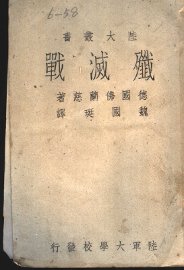 6-58
書叢大陸
戰滅殲
著慈蘭佛國德
譯珽國魏
行發校學大軍陸